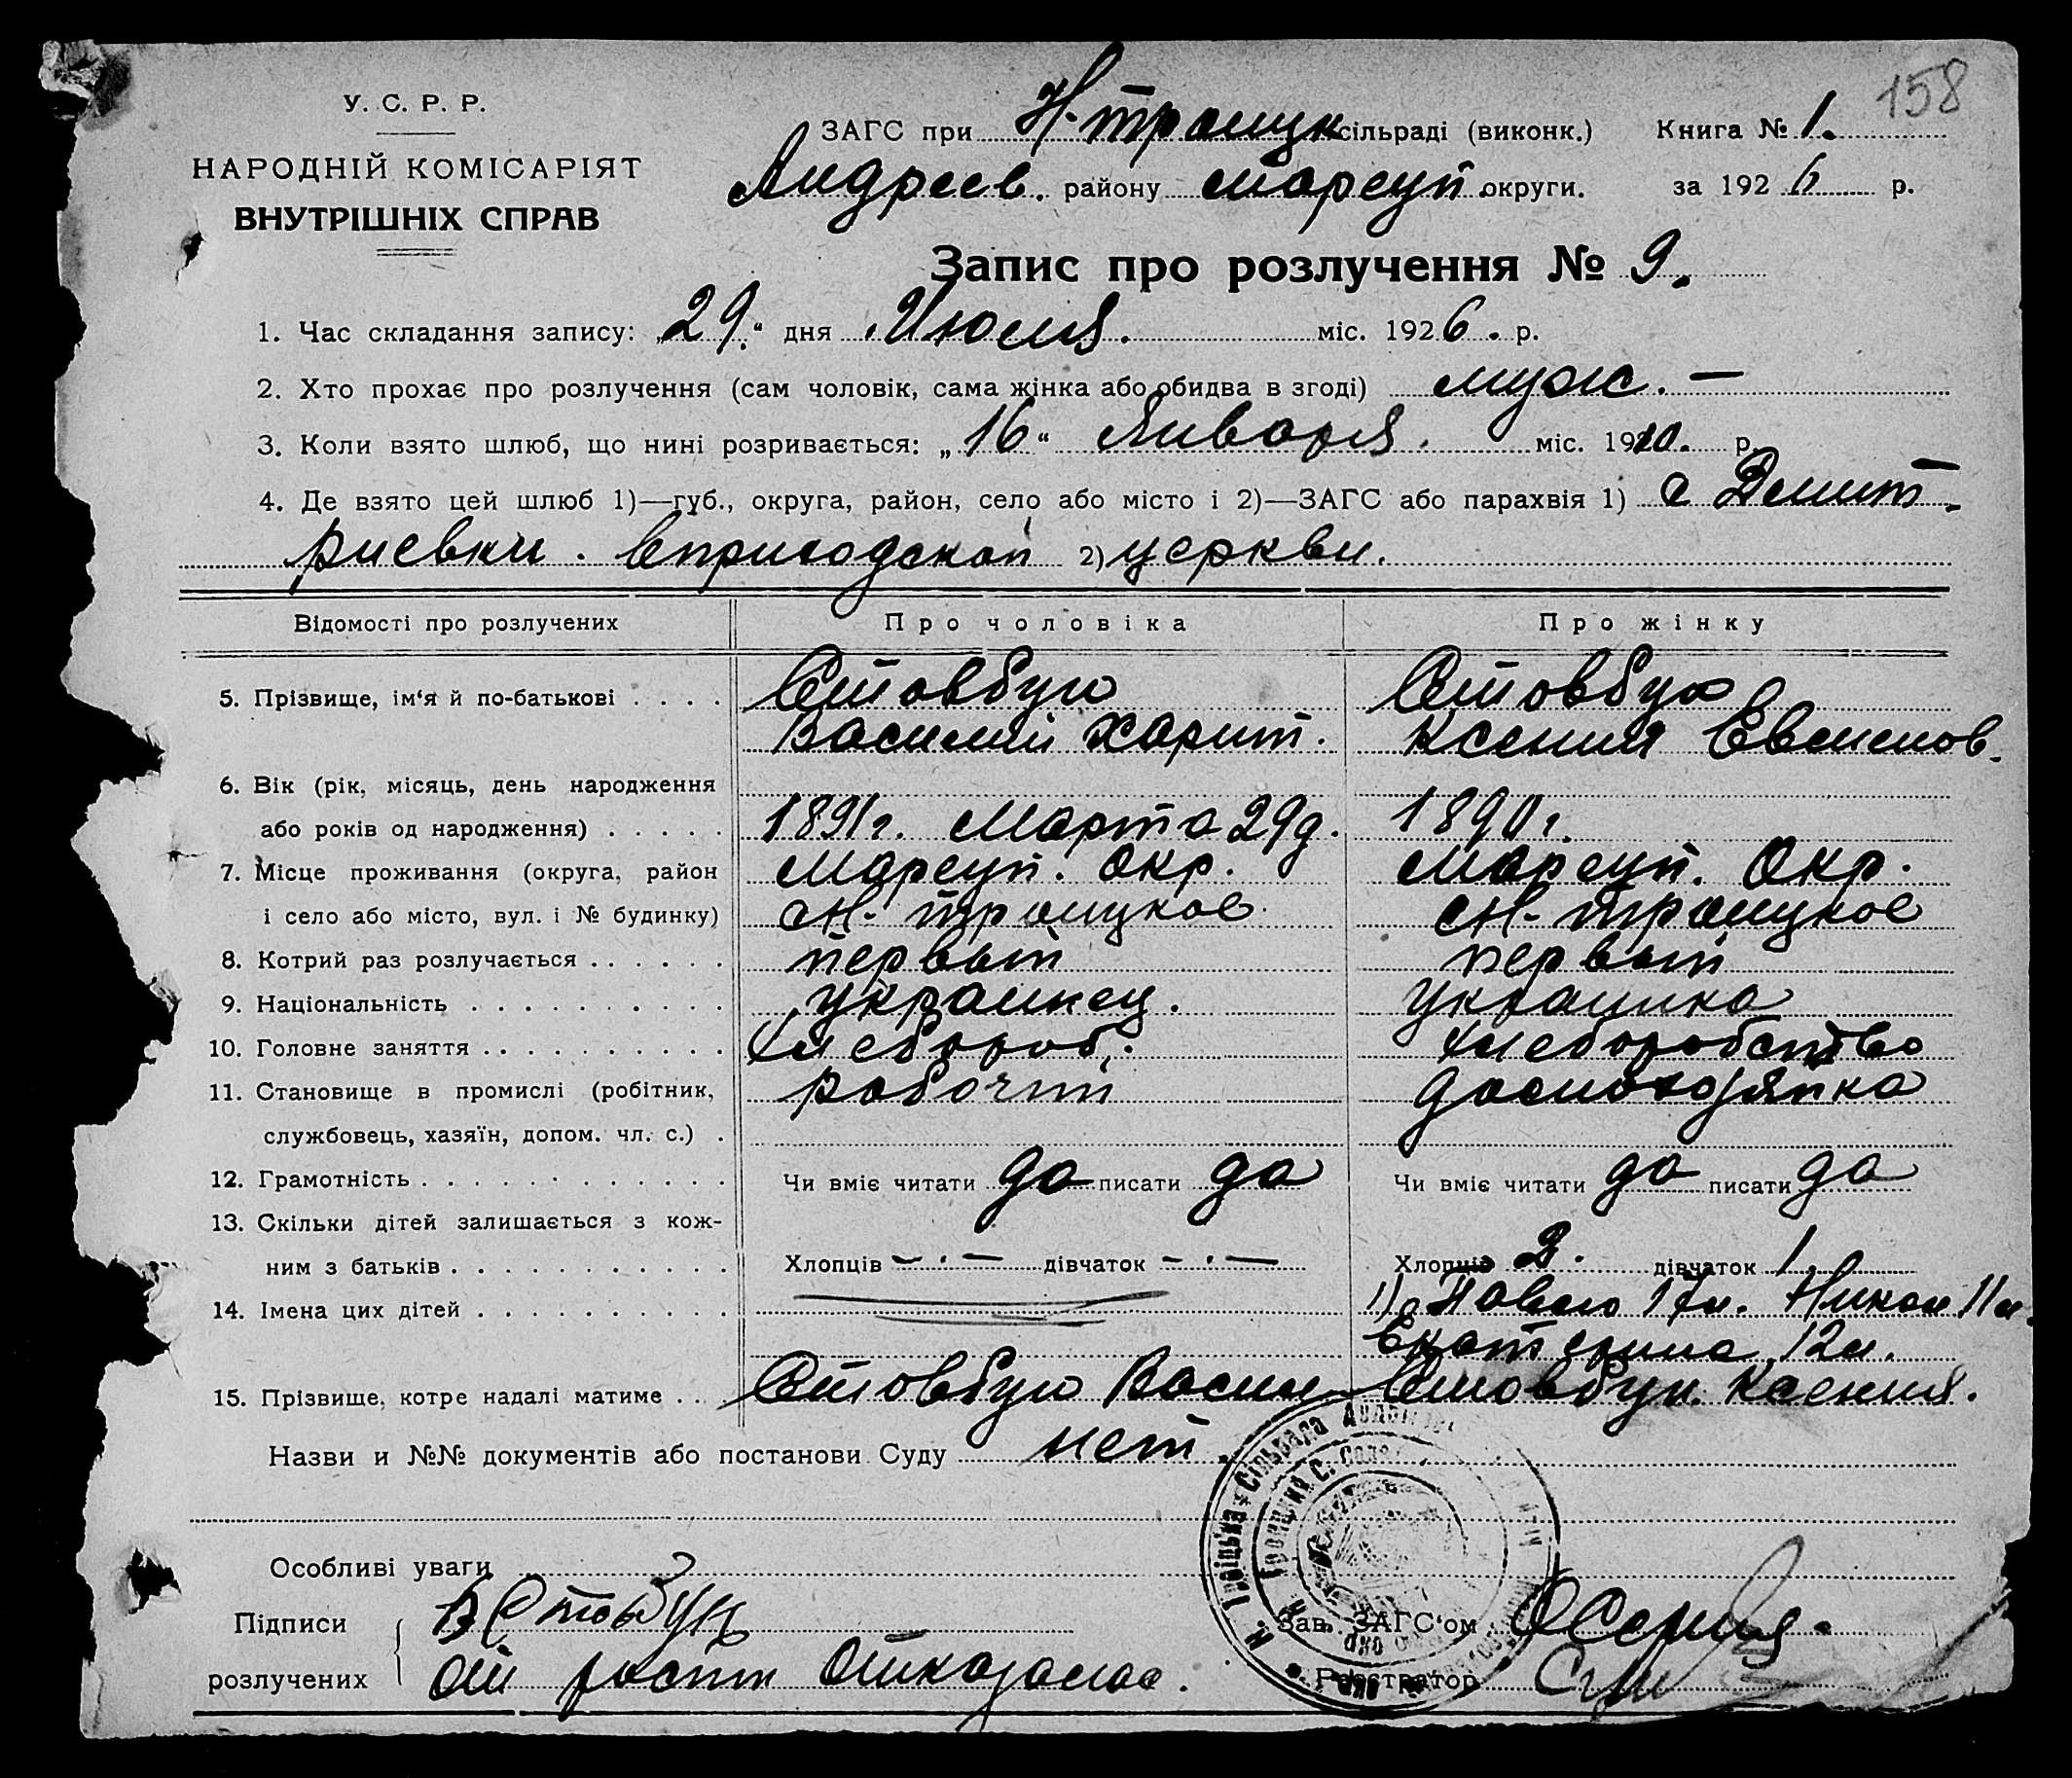 158
У. С. Р. Р.
НАРОДНІЙ КОМІСАРІЯТ
ВНУТРІШНІХ СПРАВ
ЗАГС при Н-троицк сільраді (виконк.) Книга № 1.
Андреев. району Мареуп. округи. за 1926 р.
Запис про розлучення № 9.
1. Час складання запису: „29." дня Июля. міс. 1926. р.
2. Хто прохає про розлучення (сам чоловік, сама жінка або обидва в згоді) муж. —
3. Коли взято шлюб, що нині розривається: „16" Января. міс. 1910. р.
4. Де взято цей шлюб 1)—губ., округа, район, село або місто і 2)—ЗАГС або парахвія 1) с Дмит-
риевки. в приходской 2) церкви.
Відомості про розлучених Про чоловіка Про жінку
5. Прізвище, ім'я й по-батькові . . . . Стовбун Стовбун
Василий Харит. Ксения Евсемов.
6. Вік (рік, місяць, день народження
або років од народження) . . . . . 1891г. Марта 29д. 1890г.
7. Місце проживання (округа, район Мареуп. Окр. Мареуп. Окр.
і село або місто, вул. і № будинку) сН-троицкое сН-троицкое
8. Котрий раз розлучається . . . . . . первый первый
9. Національність . . . . . . . . . . украинец. украинка
10. Головне заняття . . . . . . . . . . Хлебороб. Хлеборобство
11. Становище в промислі (робітник, рабочий домохозяйка
службовець, хазяїн, допом. чл. с.) .
12. Грамотність . . . . . . . . . . . . Чи вміє читати да писати да Чи вміє читати да писати да
13. Скільки дітей залишається з кож-
ним з батьків . . . . . . . . . . . Хлопців — . — дівчаток — . — Хлопців 2. дівчаток 1
14. Імена цих дітей . . . . . . . . . . 1) Павло 17л. Никол 11л.
Екатерина 12л.
15. Прізвище, котре надалі матиме . . . Стовбун Васил Стовбун. Ксения.
Назви и №№ документів або постанови Суду нет.
Особливі уваги
Підписи розлучених В Стовбун
От росп отказалас.
Зав. ЗАГС'ом
Реєстратор
Н. Троїцька Сільрада